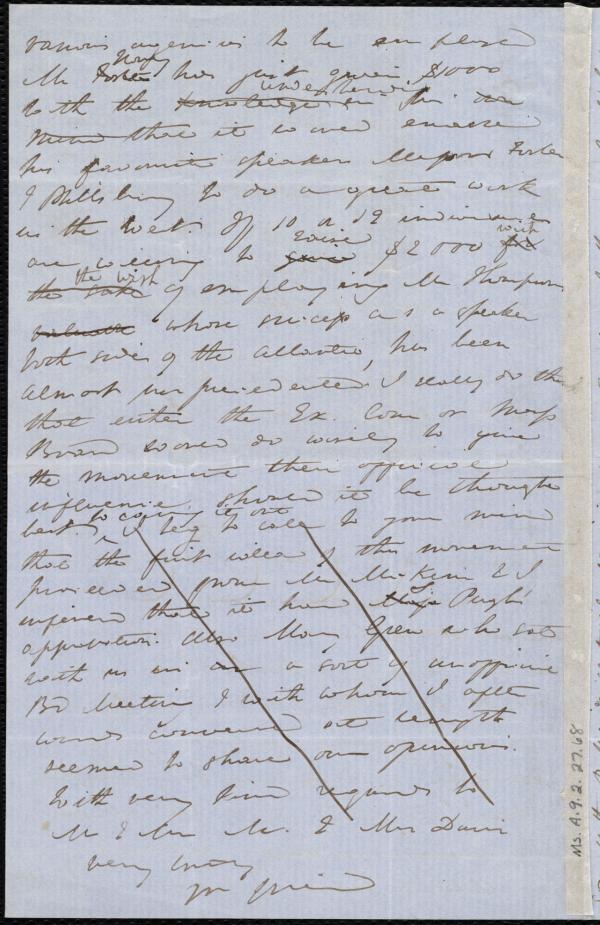 various agencies to be employed
Mr has just given $1000
with the knowledge understanding in his own
mind that it would ensure
his favourite speakers Messrs Foster
& Pillsbury to do a great work
in the West. If 10 or 12 individuals
are willing to raise $2000 with
the wish of employing Mr Thompson
whose success as a speaker
both sides of the Atlantic, has been
almost unprecedented I really do think
that either the Ex. Com or Mass
Board would do wisely to give
the movement their official
influence should it be thought
best to carry it out I beg to call to your mind
that the first idea of this movement
proceeded from Mr McKim & I
inferred that it had Pugh's
approbation. Also Mary Grew who sat
with us in a sort of unofficial
Bd Meeting & with whom I after
wards conversed at length
seemed to share our opinions.
With very kind regards to
Mr & Mrs M. & Mrs Davis
very truly
yr friend
Ms. A.9.2.27.68